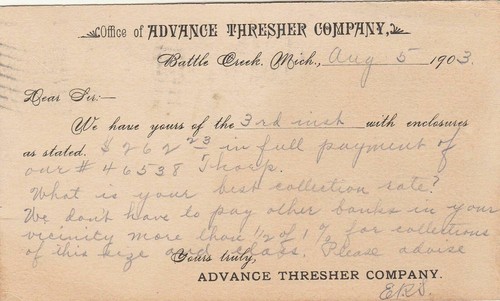 Office of ADVANCE THRESHER COMPANY,
Battle Creek, Mich., Aug 5 1903.
Dear Sir:—
We have yours of the 3rd inst with enclosures
as stated. $262 23 in full payment of
our # 46538 Thorp.
What is your best collection rate?
We don't have to pay other banks in your
vicinity more than 1/2 of 1% for collections
of this size and class. Please advise
Yours truly,
ADVANCE THRESHER COMPANY.